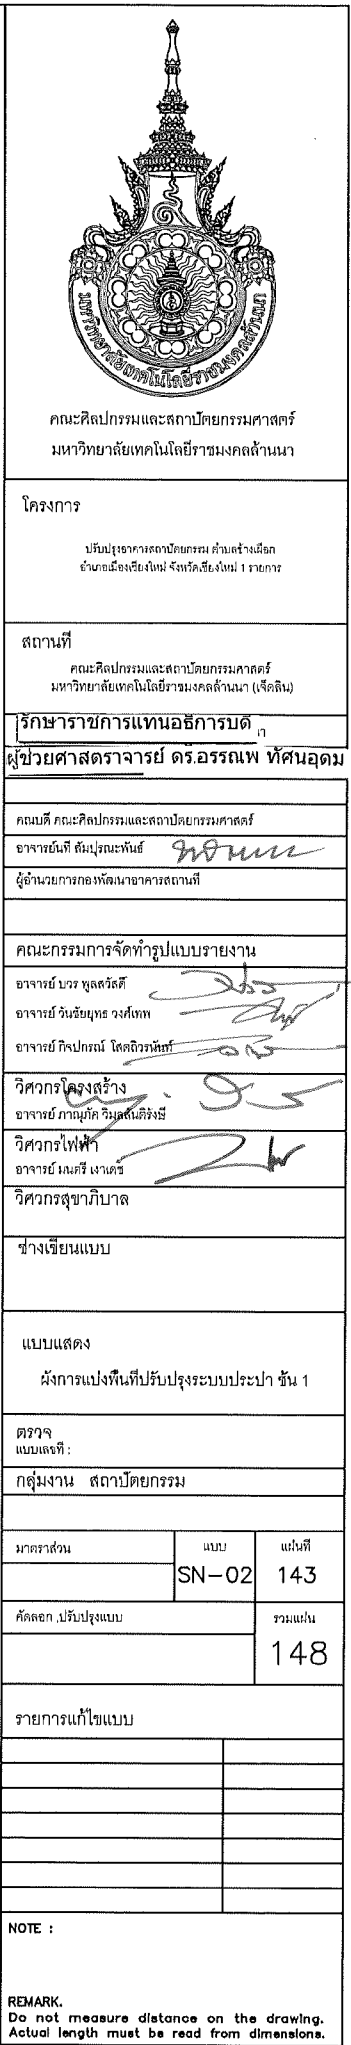 มหาวิทยาลัยเทคโนโลยีราชมงคลล้านนา
คณะศิลปกรรมและสถาปัตยกรรมศาสตร์
มหาวิทยาลัยเทคโนโลยีราชมงคลล้านนา
โครงการ
ปรับปรุงอาคารสถาปัตยกรรม ตำบลช้างเผือก
อำเภอเมืองเชียงใหม่ จังหวัดเชียงใหม่ 1 รายการ
สถานที่
คณะศิลปกรรมและสถาปัตยกรรมศาสตร์
มหาวิทยาลัยเทคโนโลยีราชมงคลล้านนา (เจ็ดลิน)
รักษาราชการแทนอธิการบดี
ผู้ช่วยศาสตราจารย์ ดร.อรรณพ ทัศนอุดม
คณบดี คณะศิลปกรรมและสถาปัตยกรรมศาสตร์
อาจารย์นที สัมปุรณะพันธ์
ผู้อำนวยการกองพัฒนาอาคารสถานที่
คณะกรรมการจัดทำรูปแบบรายงาน
อาจารย์ บวร พูลสวัสดิ์
อาจารย์ วันชัยยุทธ วงศ์เทพ
อาจารย์ กิจปกรณ์ โสตถิวรนันท์
วิศวกรโครงสร้าง
อาจารย์ ภาณุภัค วิมลสันติรังษี
วิศวกรไฟฟ้า
อาจารย์ มนตรี เงาเดช
วิศวกรสุขาภิบาล
ช่างเขียนแบบ
แบบแสดง
ผังการแบ่งพื้นที่ปรับปรุงระบบประปา ชั้น 1
ตรวจ
แบบเลขที่ :
กลุ่มงาน สถาปัตยกรรม
มาตราส่วน แบบ แผ่นที่
SN-02 143
คัดลอก ,ปรับปรุงแบบ รวมแผ่น
148
รายการแก้ไขแบบ
NOTE :
REMARK.
Do not measure distance on the drawing.
Actual length must be read from dimensions.